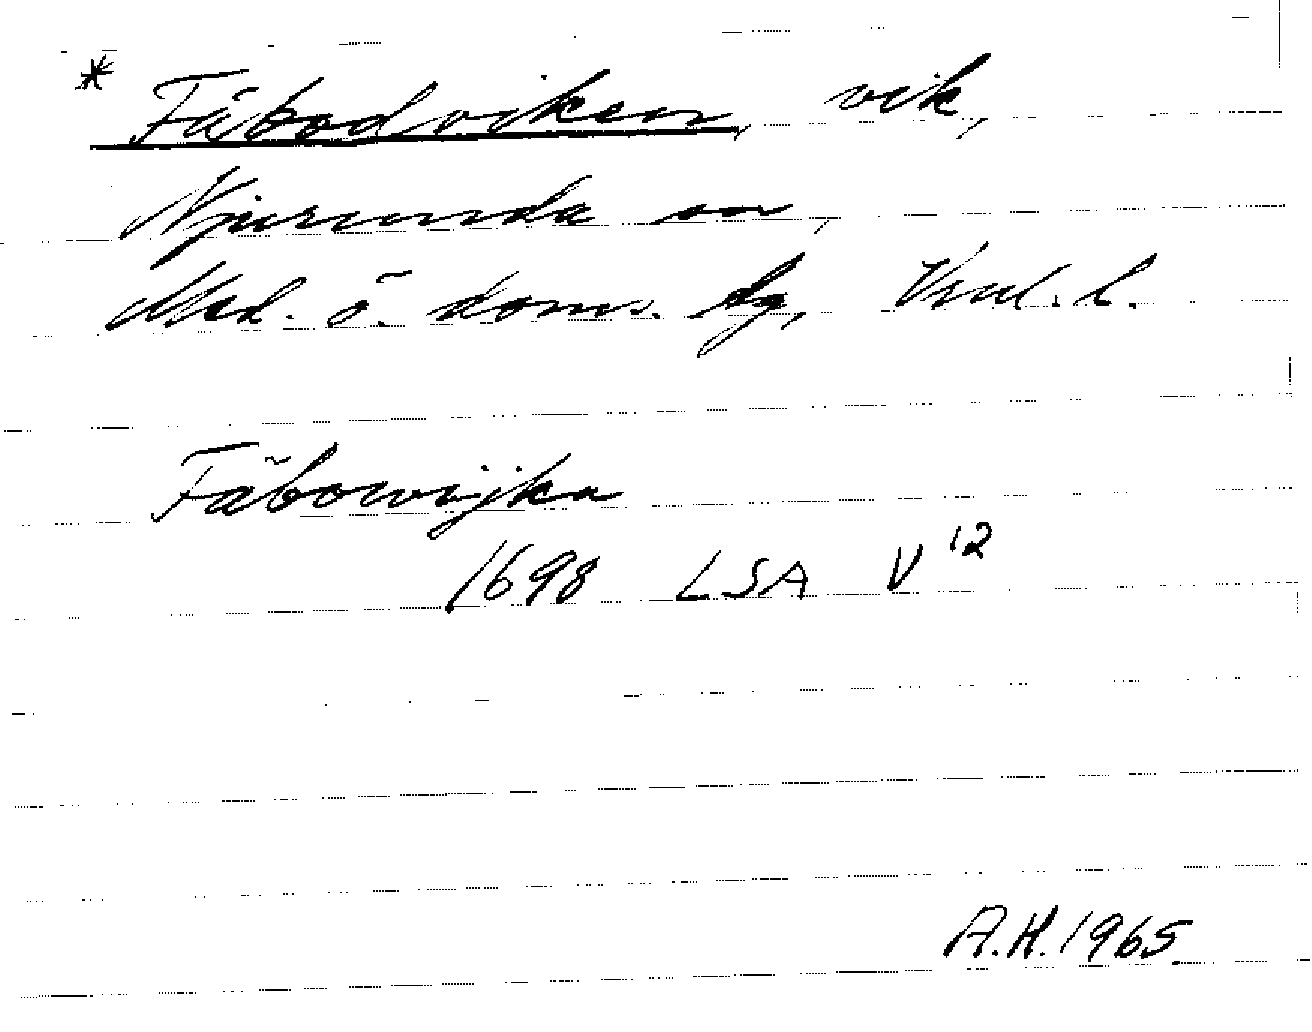 * Fäbodviken, vik,
Njurunda sn,
Med. ö. doms. dg, Vnl. l.
Fäbowijka
1698 LSA V 12
A.H. 1965.